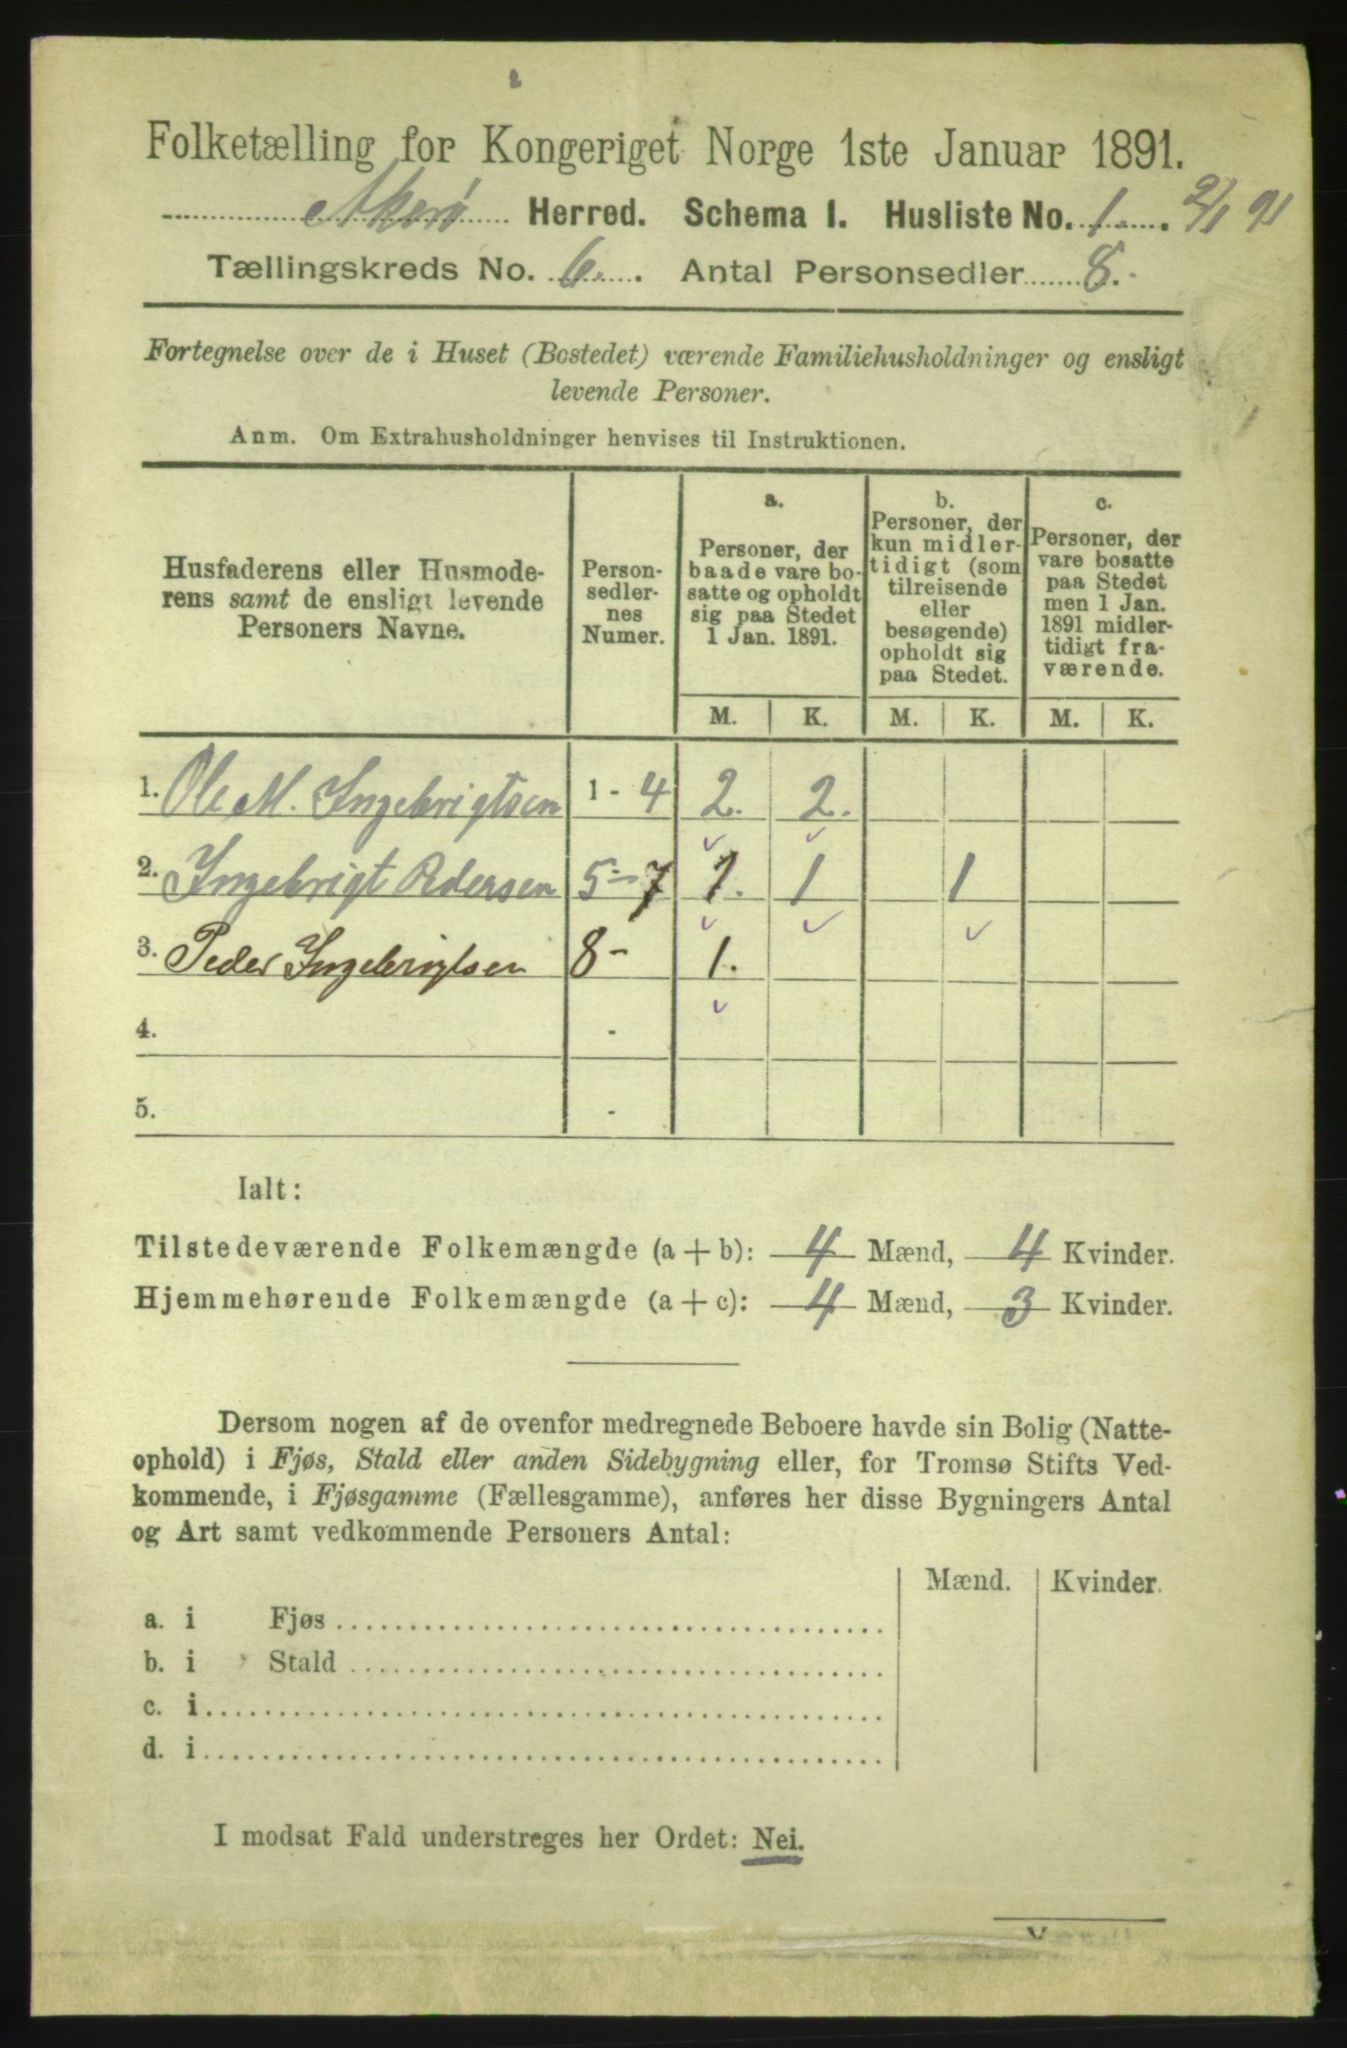 Folketælling for Kongeriget Norge 1ste Januar 1891.
Akerø Herred. Schema I. Husliste No. 1. 2/1 91
Tællingskreds No. 6. Antal Personsedler 8.
Fortegnelse over de i Huset (Bostedet) værende Familiehusholdninger og ensligt
levende Personer.
Anm. Om Extrahusholdninger henvises til Instruktionen.
Husfaderens eller Husmode-
rens samt de ensligt levende
Personers Navne.
Person-
sedler-
nes
Numer.
a.
Personer, der
baade vare bo-
satte og opholdt
sig paa Stedet
1 Jan. 1891.
b.
Personer, der
kun midler-
tidigt (som
tilreisende
eller
besøgende)
opholdt sig
paa Stedet.
c.
Personer, der
vare bosatte
paa Stedet
men 1 Jan.
1891 midler-
tidigt fra-
værende.
M. K. M. K. M. K.
1. Ole M. Ingebrigtsen 1 - 4 2. 2.
2. Ingebrigt Pedersen 5 - 7 1. 1 1
3. Peder Ingebrigtsen 8 - 1.
4. -
5. -
Ialt:
Tilstedeværende Folkemængde (a + b): 4 Mænd, 4 Kvinder.
Hjemmehørende Folkemængde (a + c): 4 Mænd, 3 Kvinder.
Dersom nogen af de ovenfor medregnede Beboere havde sin Bolig (Natte-
ophold) i Fjøs, Stald eller anden Sidebygning eller, for Tromsø Stifts Ved-
kommende, i Fjøsgamme (Fællesgamme), anføres her disse Bygningers Antal
og Art samt vedkommende Personers Antal:
Mænd. Kvinder.
a. i Fjøs
b. i Stald
c. i
d. i
I modsat Fald understreges her Ordet: Nei.